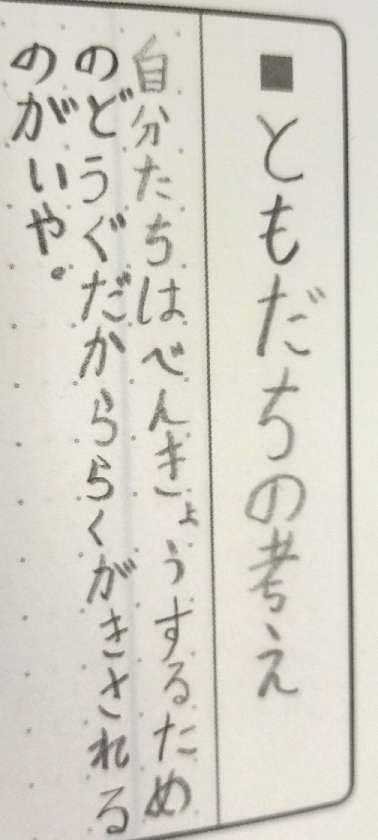 ■ともだちの考え
自分たちはべんきょうするため
のどうぐだかららくがきされる
のがいや。